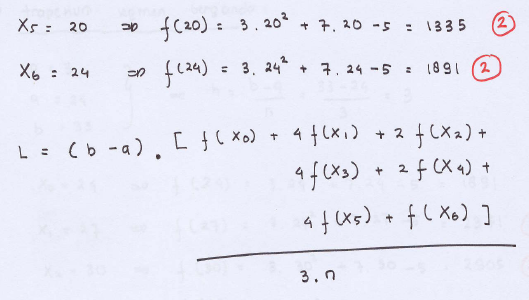 X5 = 20 ⇒ f(20) = 3.20² + 7.20 - 5 = 1335 ②
X6 = 24 ⇒ f(24) = 3.24² + 7.24 - 5 = 1891 ②
L = (b-a) . [ f(X0) + 4f(X1) + 2f(X2) +
4f(X3) + 2f(X4) +
4f(X5) + f(X6) ]
3.n